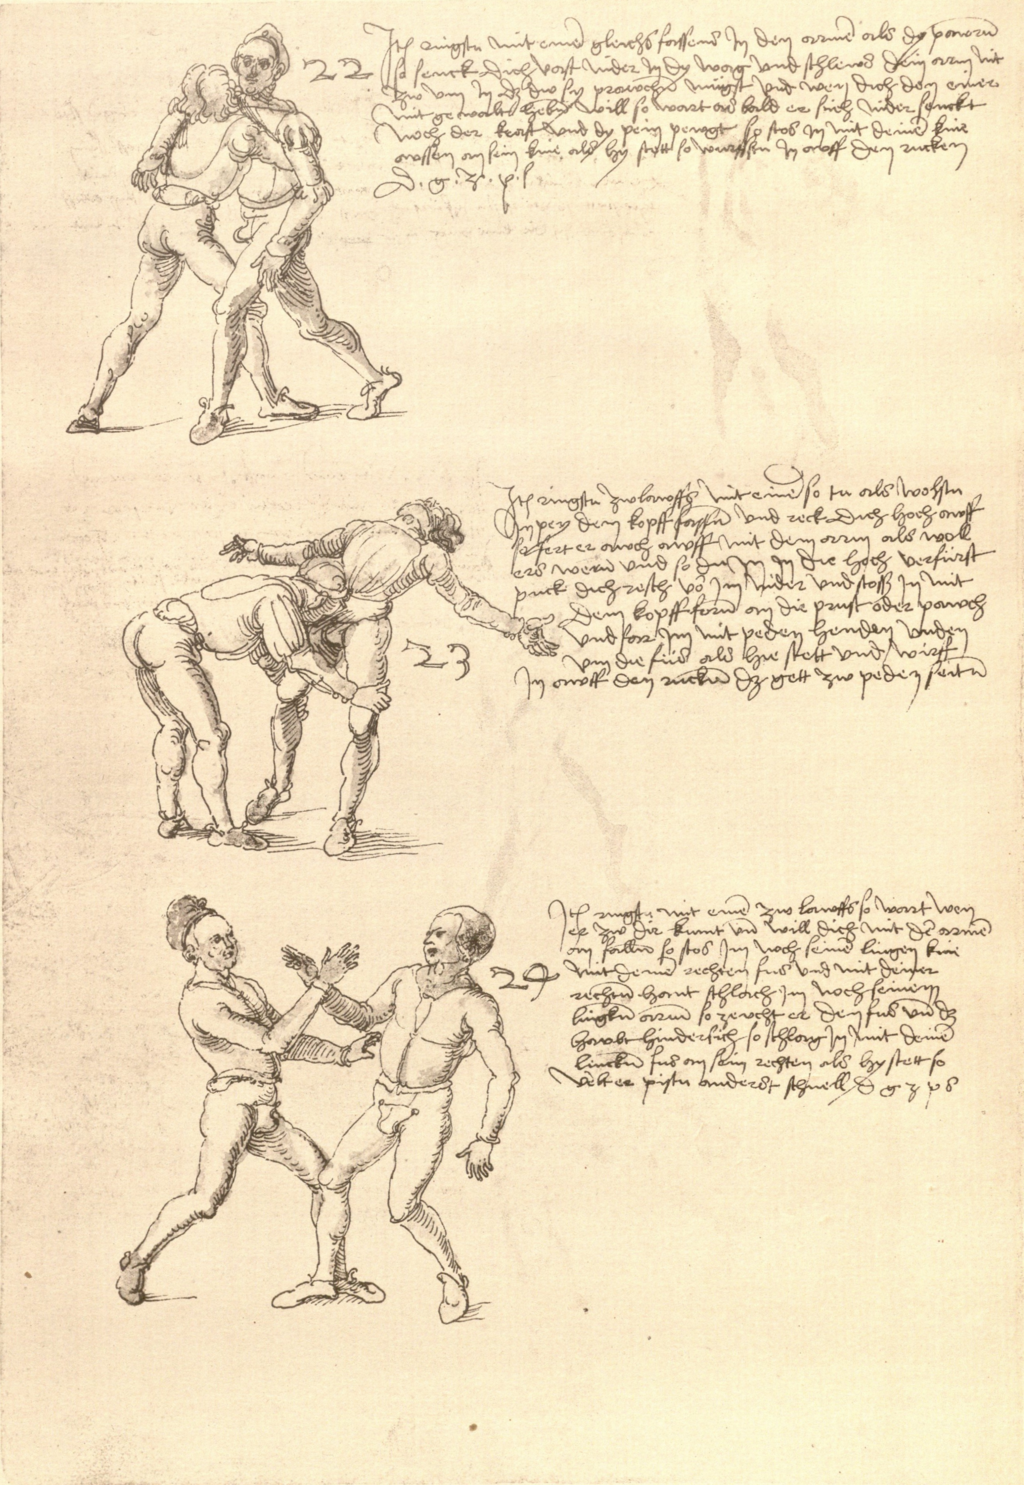 22
Jtē ringstu mit eine͂ gleichs fassens Jn den arme͂ als dy pawern
so senck dich vast nider Jn dy wag und schlews dein arm nit
zw um Jn dz dw sy prawche͂ mügst und wen dich den einer
mit gewalt hebe͂ will so wart als bald er sich nider senckt
noch der kraft und dy pein pewgt so stos Jn mit deine͂ knie
awssen an sein knie als hy stett so wurffstu Jn awff den rucken
d. g. z. p. s
23
Jtē ringstu zwlawffs mit eine͂ so tu als wolstu
Jn pey dem kopff fassen͂ und reck dich hoch awff
so fert er awch awff mit dem arm als woll
ers weren und so dw Jn Jn die hoch verfürst
puck dich resch vō Jm nider und stoss Jn mit
dem kopff forn͂ an die prust oder pawch
und far Jm mit peden henden unden
um die füs als hie stett und wirff
Jn awff den rucken͂ dz gett zw peden seitn͂
24
Jtē ringstu mit eine͂ zw lawffs so wart wen
er zw dir kumt un͂ will dich mit de͂ arme͂
an fallen so stos Jm noch seinem lingen knie
mit deine͂ rechten fus und mit deiner
rechten͂ hant schlach Jm noch seinem
lingken͂ arm so zewcht er den fus un͂ dz
hawbt hindersich so schlag Jn mit deine͂
lincken͂ fus an sein rechten als hy stett so
velt er pistu anderst schnell d g z p s